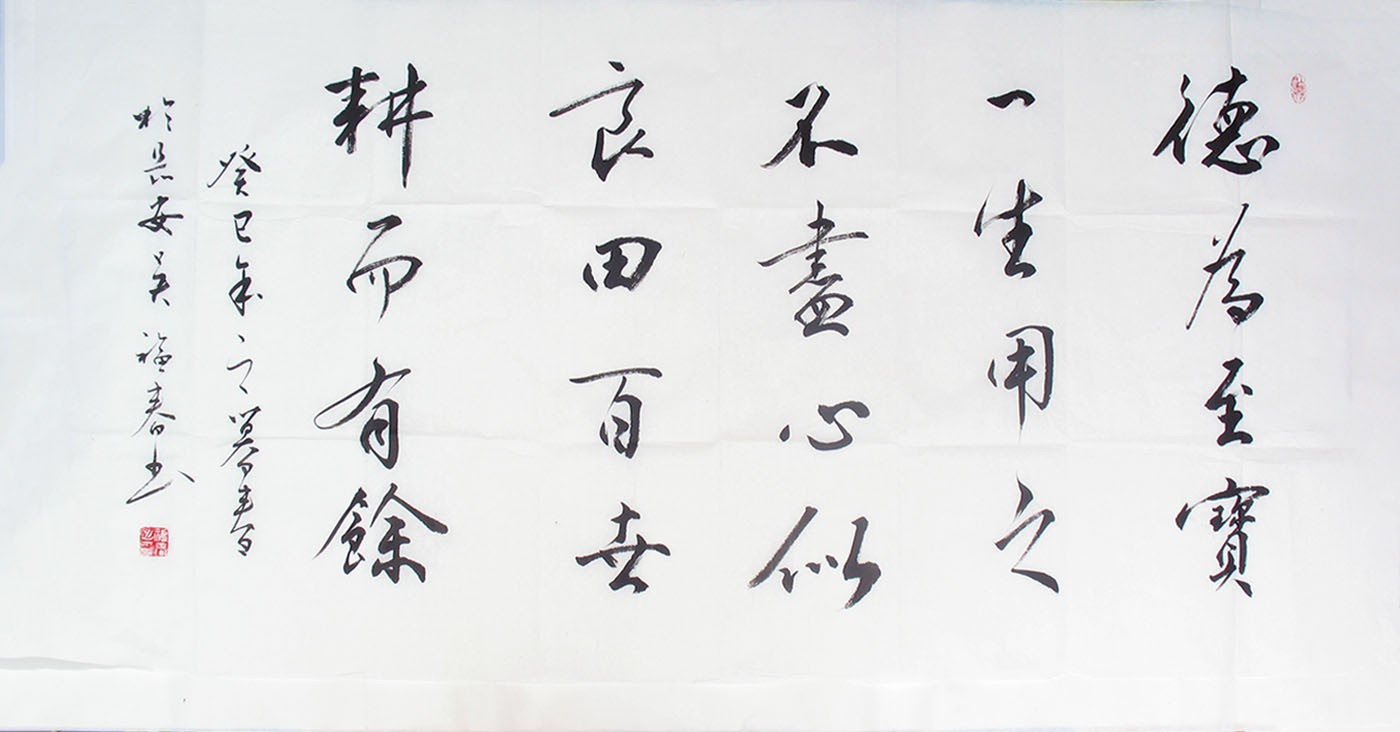 德為至寶
一生用之
不盡心似
良田百世
耕而有餘
癸巳年之暮春
於長安吳福春書